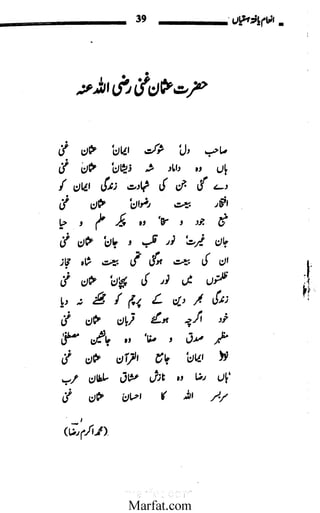 انعام یافتہ ہستیاں
39
حضرت عثمان غنی رضی اللہ عنہ
صاحب دل شوکت ایمان عثمان غنی
ہاں وہ داماد شہ ذیشان عثمان غنی
دے گئی جن کی شہادت زندگی ایمان کو
افتخار بیعت رضوان عثمان غنی
منبع جود و سخا وہ پیکر حلم و حیا
جان غیرت نور قلب و جان عثمان غنی
ان کی بیعت ہوگئی تھی بیعت شاہ حجاز
ظلمتوں میں نور کی پہچان عثمان غنی
زندگی بھر دین کے پرچم کو جھکنے نہ دیا
خود اگرچہ ہوگئے قربان عثمان غنی
مظہر صدق و صفا وہ جانشین مصطفیٰ
ایمان جامع القرآن عثمان غنی
ہاں رضا وہ نازش عشاق سلطان عرب
سربسر اللہ کا احسان عثمان غنی
(محمد اکرم رضا)
Marfat.com